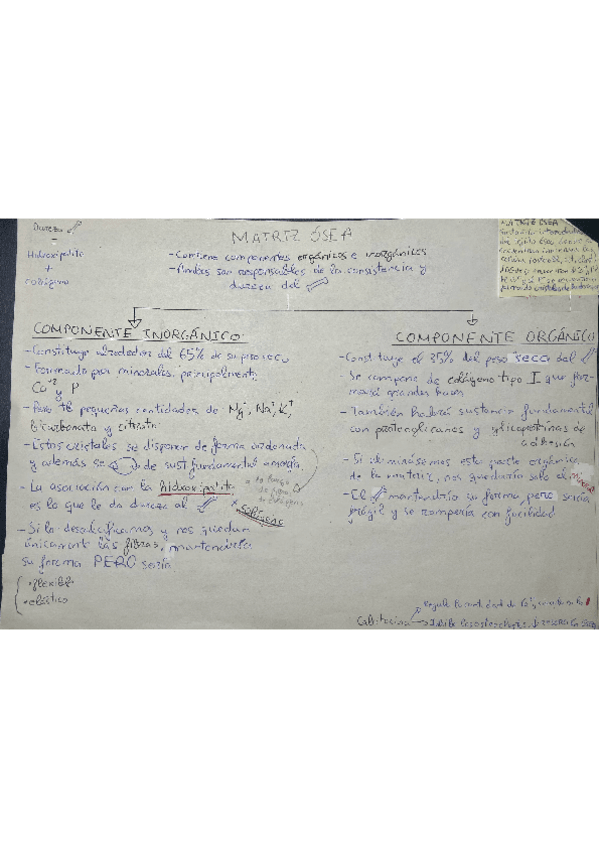 Dureza
=
Hidroxiapatita
+
colágeno
MATRIZ ÓSEA
- Contiene componentes orgánicos e inorgánicos
- Ambos son responsables de la consistencia y
dureza del
MATRIZ ÓSEA
COMPONENTE INORGÁNICO:
- Constituye alrededor del 65% de su peso seco
- Formado por minerales, principalmente
Ca⁺² y P
- Pero tb pequeñas cantidades de Mg, Na⁺, K⁺,
bicarbonato y citrato
- Estos cristales se disponen de forma ordenada
y además se de sust. fundamental amorfa
a lo largo
de fibras
de colágeno
- La asociación con la hidroxiapatita
es lo que le da dureza al
+ colágeno
- Si lo descalcificamos y nos quedan
únicament las fibras, mantendría
su forma PERO sería
• flexible
• elástico
COMPONENTE ORGÁNICO:
- Constituye el 35% del peso seco del
- Se compone de colágeno tipo I que for-
mará grandes haces
- También habrá sustancia fundamental
con proteoglicanos y glicoproteínas de
adhesión
- Si eliminásemos esta parte orgánica
de la matriz, nos quedaría solo el mineral
- El mantendría su forma, pero sería
frágil y se rompería con facilidad
Calcitonina